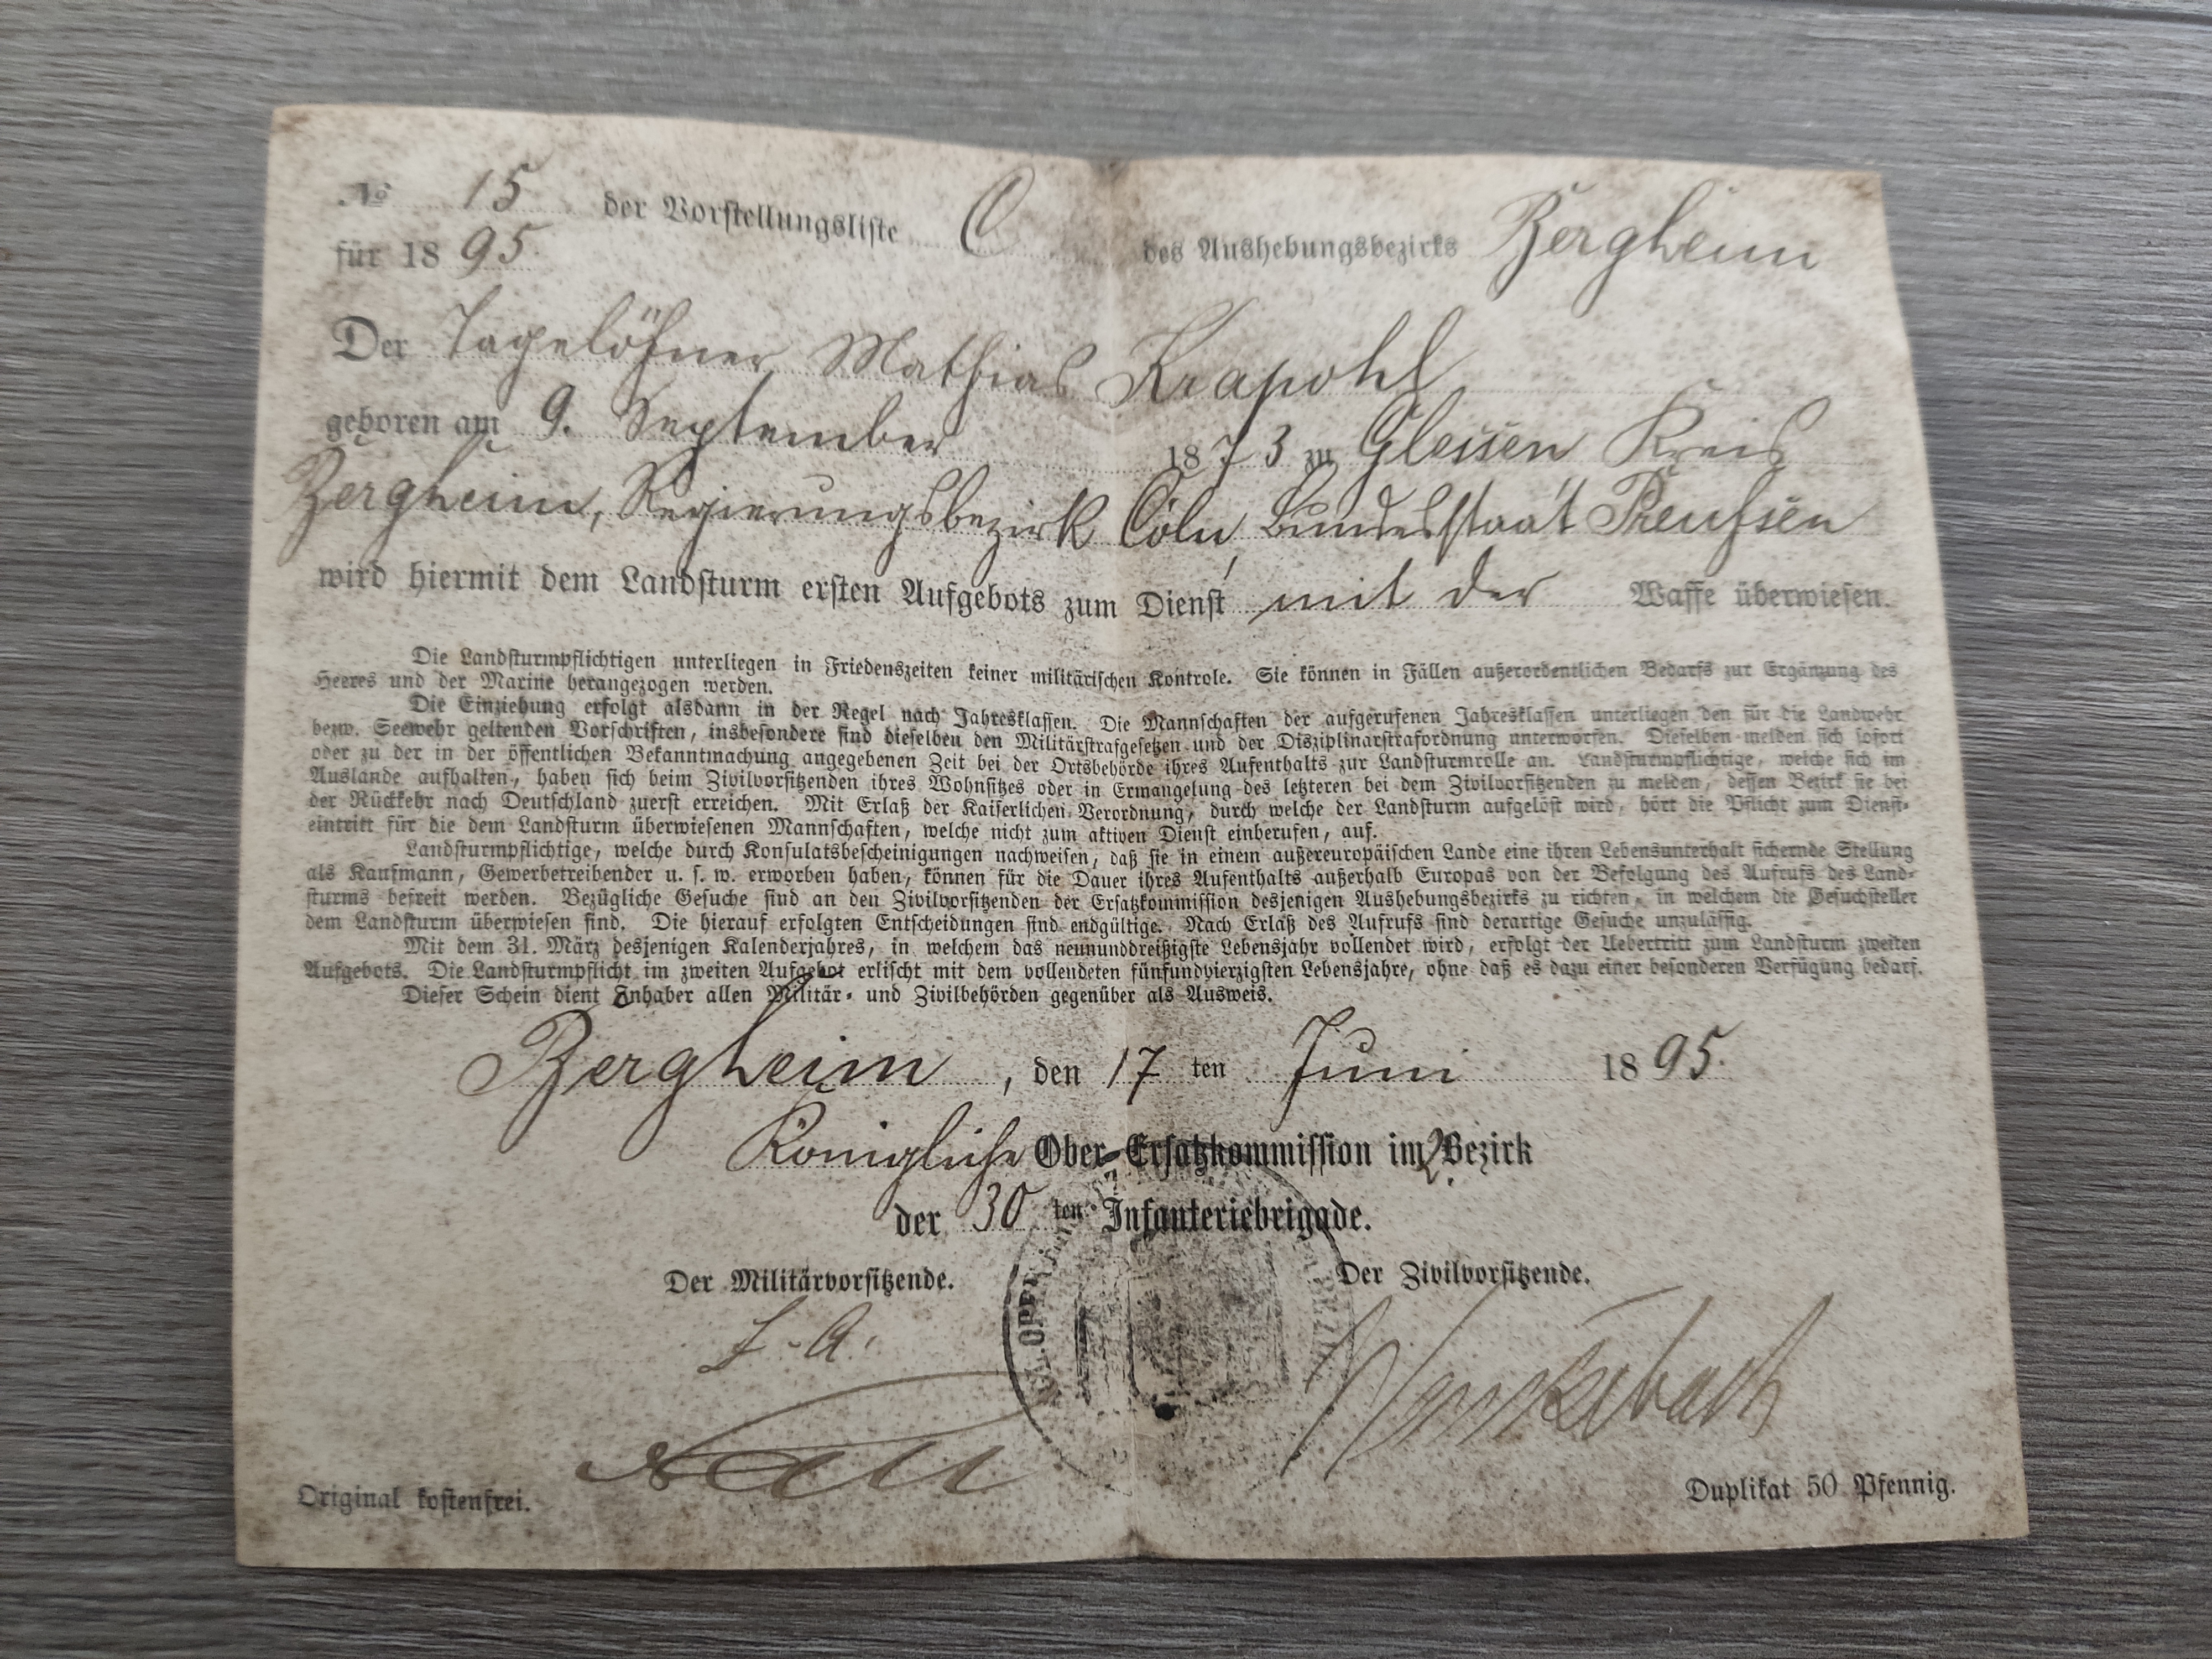 № 15 der Vorstellungsliste C des Aushebungsbezirks Bergheim
für 1895.
Der Tagelöhner Mathias Krapohl
geboren am 9. September 1873 zu Glessen Kreis
Bergheim, Regierungsbezirk Cöln, Bundesstaat Preußen
wird hiermit dem Landsturm ersten Aufgebots zum Dienst mit der Waffe überwiesen.
Die Landsturmpflichtigen unterliegen in Friedenszeiten keiner militärischen Kontrole. Sie können in Fällen außerordentlichen Bedarfs zur Ergänzung des
Heeres und der Marine herangezogen werden.
Die Einziehung erfolgt alsdann in der Regel nach Jahresklassen. Die Mannschaften der aufgerufenen Jahresklassen unterliegen den für die Landwehr
bezw. Seewehr geltenden Vorschriften, insbesondere sind dieselben den Militärstrafgesetzen und der Disziplinarstrafordnung unterworfen. Dieselben melden sich sofort
oder zu der in der öffentlichen Bekanntmachung angegebenen Zeit bei der Ortsbehörde ihres Aufenthalts zur Landsturmrolle an. Landsturmpflichtige, welche sich im
Auslande aufhalten, haben sich beim Zivilvorsitzenden ihres Wohnsitzes oder in Ermangelung des letzteren bei dem Zivilvorsitzenden zu melden, dessen Bezirk sie bei
der Rückkehr nach Deutschland zuerst erreichen. Mit Erlaß der Kaiserlichen Verordnung, durch welche der Landsturm aufgelöst wird, hört die Pflicht zum Dienst-
eintritt für die dem Landsturm überwiesenen Mannschaften, welche nicht zum aktiven Dienst einberufen, auf.
Landsturmpflichtige, welche durch Konsulatsbescheinigungen nachweisen, daß sie in einem außereuropäischen Lande eine ihren Lebensunterhalt sichernde Stellung
als Kaufmann, Gewerbetreibender u. s. w. erworben haben, können für die Dauer ihres Aufenthalts außerhalb Europas von der Befolgung des Aufrufs des Land-
sturms befreit werden. Bezügliche Gesuche sind an den Zivilvorsitzenden der Ersatzkommission desjenigen Aushebungsbezirks zu richten, in welchem die Gesuchsteller
dem Landsturm überwiesen sind. Die hierauf erfolgten Entscheidungen sind endgültige. Nach Erlaß des Aufrufs sind derartige Gesuche unzulässig.
Mit dem 31. März desjenigen Kalenderjahres, in welchem das neununddreißigste Lebensjahr vollendet wird, erfolgt der Uebertritt zum Landsturm zweiten
Aufgebots. Die Landsturmpflicht im zweiten Aufgebot erlischt mit dem vollendeten fünfundvierzigsten Lebensjahre, ohne daß es dazu einer besonderen Verfügung bedarf.
Dieser Schein dient Inhaber allen Militär- und Zivilbehörden gegenüber als Ausweis.
Bergheim, den 17ten Juni 1895.
Königliche Ober-Ersatzkommission im 2. Bezirk
der 30ten Infanteriebrigade.
Der Militärvorsitzende. Der Zivilvorsitzende.
Original kostenfrei. Duplikat 50 Pfennig.